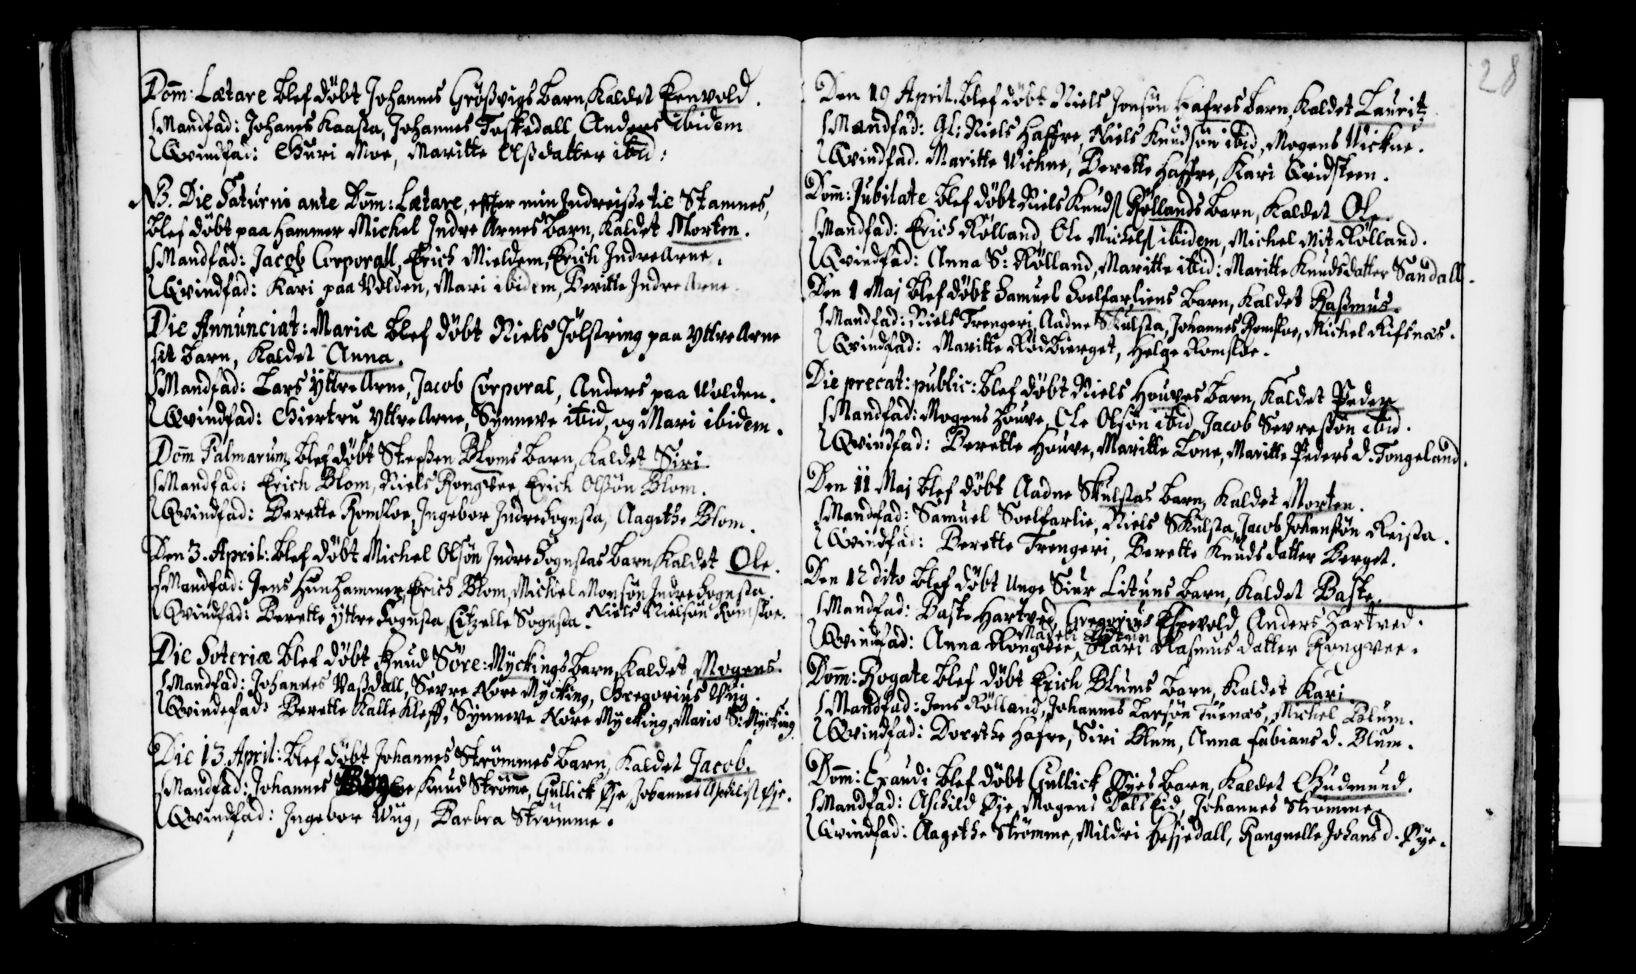 Dom̄: Lætare blef døbt Johannes Grøßvigs barn, Kaldet Eenvold.
Mandfad: Johanes Kaasta, Johannes Toskedall Anders ibidem
Qvindfad: Guri Moe, Maritte Olßdatter ibid:
NB. Die Saturni ante Dom̄: Lætare, effter min Indreiße til Stamnes,
blef døbt paa Hammer Michel Indre Arnes barn, Kaldet Morten.
Mandfad: Jacob Corporall, Erich Mieldem, Erich Indre Arne.
Qvindfad: Kari paa Volden, Mari ibidem, Beritte Indre Arne.
Die Annunciat: Mariæ blef døbt Niels Jölstring paa Yttre Arne
sit barn, Kaldet Anna.
Mandfad: Lars Yttre Arne, Jacob Corporal, Anders paa Wolden.
Qvindfad: Giertru Yttre Arne, Synneve ibid, og Mari ibidem.
Dom̄ Palmarum, blef døbt Stephen Bloms barn, Kaldet Siri.
Mandfad: Erich Blom, Niels Rongvee Erich Olßøn Blom.
Qvindfad: Berette Romsloe, Ingebor Indre Bognsta, Aagethe Blom.
Den 3. April: blef døbt Michel Olsøn Indre Bognstas barn, Kaldet Ole.
Mandfad: Jens Hunhammer, Erich Blom, Michiel Monsøn Indre Bognsta.
Qvindfad: Berette Yttre Bognsta, Citzelle Bognsta. Niels Nielsøn Romsloe.
Die Soteriæ blef døbt Knud Söre: Myckings barn, Kaldet Mogens.
Mandfad: Johannes Vaßdall, Sevre Nore Mycking, Gregorius Wug.
Qvindefad: Berette Kalle Kleff, Synneve Nore Mycking, Mario S: Mycking.
Die 13. April: blef døbt Johannes Strömmes barn, Kaldet Jacob.
Mandfad: Johannes Knud Strømme, Gullick Øje, Johannes Aschildß Øje.
Qvindfad: Ingebor Wug, Barbra Strømme.
28
Den 19 April. blef døbt Niels Jonsøn Hafres barn, Kaldet Lauritz
Mandfad: Gl: Niels Haffre, Niels Knudsøn ibid, Mogens Vickne.
Qvindfad. Maritte Vichne, Berette Haffre, Kari Qvidsteen.
Dom̄: Jubilate blef døbt Niels Knudß Røllands barn, Kaldet Ole
Mandfad: Erich Rølland Ole Michelß ibidem, Michel Mit Rølland.
Qvindfad: Anna S: Rølland, Maritte ibid: Maritte Knudsdatter Sandall.
Den 1 Maj blef døbt Samuel Soelfarliens barn, Kaldet Raßmus.
Mandfad: Niels Trengeri Aadne Skulsta, Johannes Romsloe, Michel Rifsnæs.
Qvindfad: Maritte Rødbierget, Helge Romsloe.
Die precat: public: blef døbt Niels Houves barn, Kaldet Peder
Mandfad: Mogens Houve, Ole Olsøn ibid Jacob Sevressøn ibid.
Qvindfad: Berette Houve, Maritte Lone, Maritte Peders d. Tongeland.
Den 11 Maj blef døbt Aadne Skulstas barn, Kaldet Morten.
Mandfad: Samuel Soelfarlie, Niels Skulsta, Jacob Johansøn Reista.
Qvindfad: Berette Trengeri, Berette Knudsdatter Berget.
Den 12 dito blef døbt Unge Siur Lituns barn, Kaldet Baste.
Mandfad: Baste Hartved, Gregorius Espevold Anders Hartved.
Qvindfad: Anna Rongvee, Kari Rasmusdatter Rongvee.
Dom̄: Rogate blef døbt Erich Blums barn, Kaldet Kari
Mandfad: Jens Rølland, Johannes Larsøn Tuenæs, Michel Blum.
Qvindfad: Dorethe Hafre, Siri Blum, Anna Fabians d. Blum.
Dom̄: Exaudi blef døbt Gullick Øyes barn, Kaldet Gudmund.
Mandfad: Aschild Øje, Mogens Dalseid, Johannes Strømme.
Qvindfad: Aagethe Strømme, Mildri Hesjedall, Rangnelle Johans d. Øye.